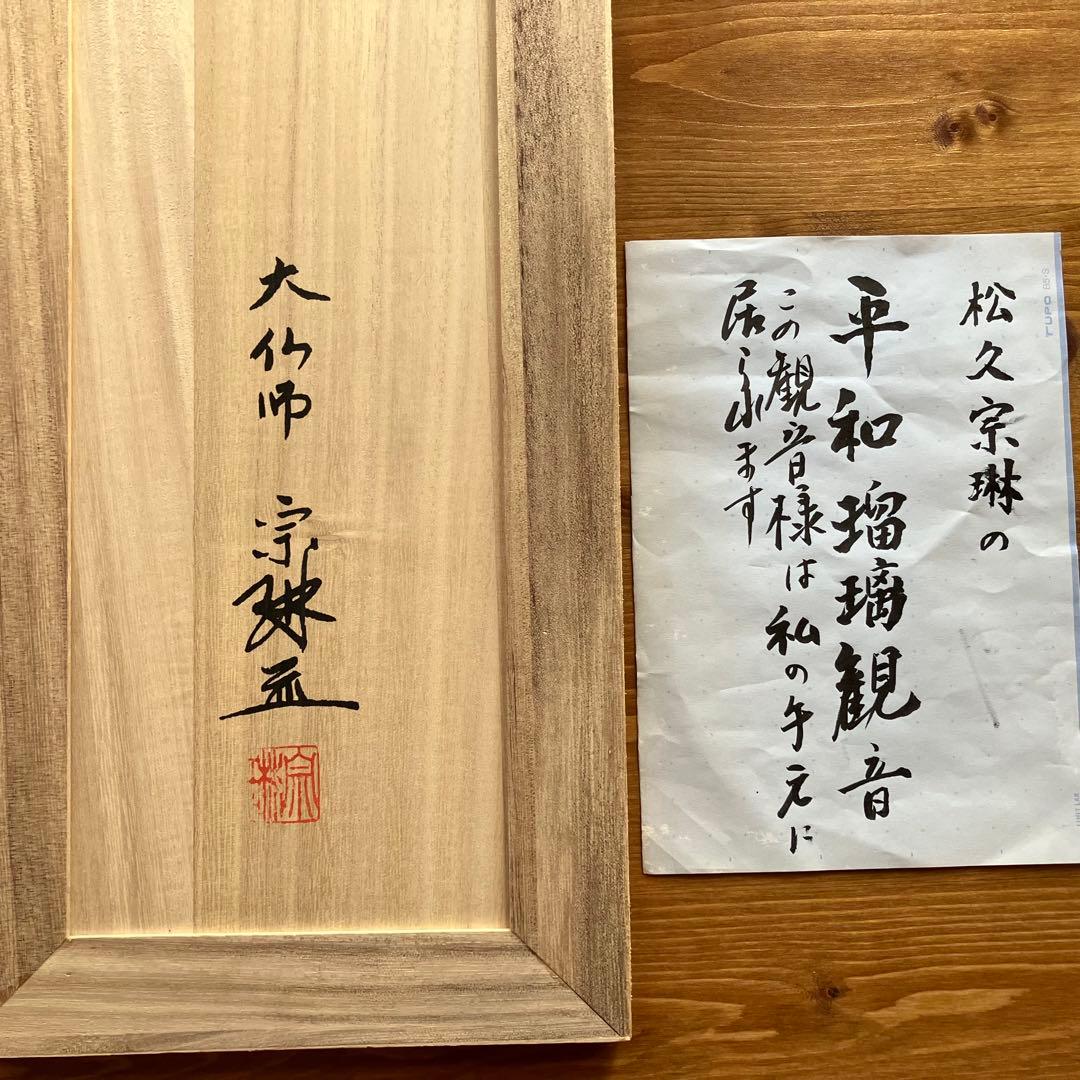 松久宗琳の
平和瑠璃観音
この観音様は私の手元に
居られます
大仏師 宗琳